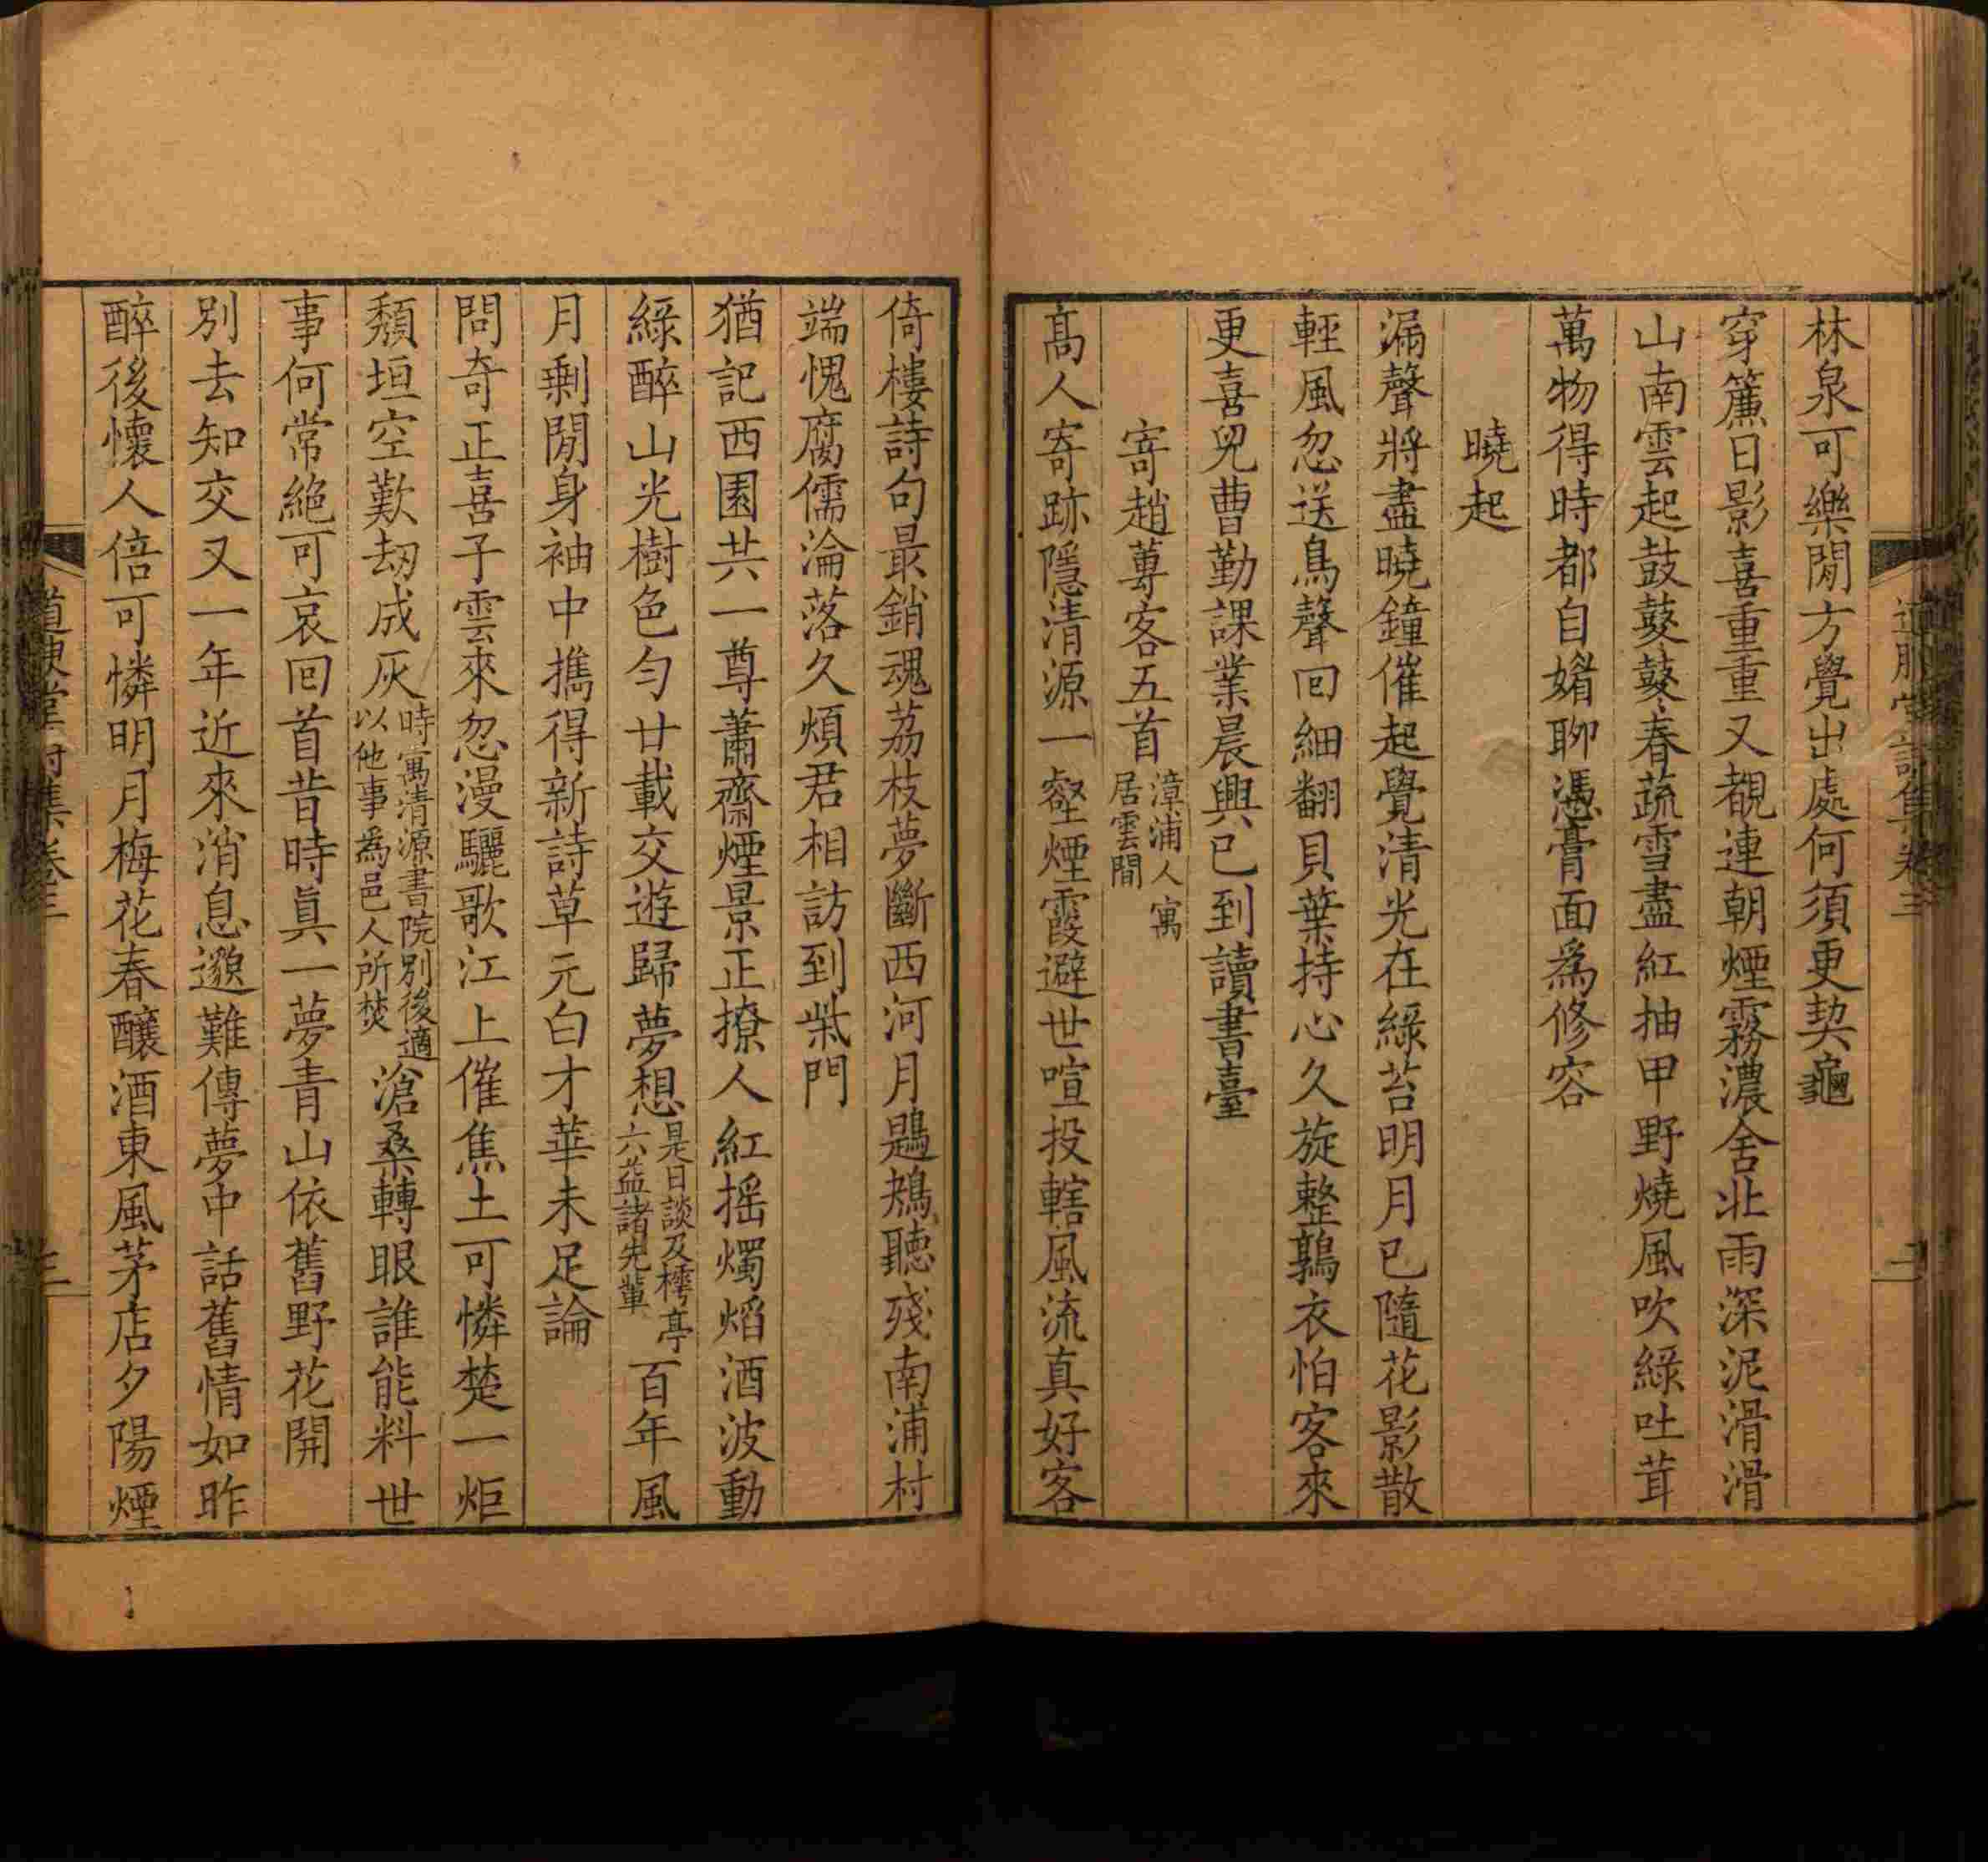 林泉可樂閒方覺出處何須更契龜
穿簾日影喜重重又覩連朝煙霧濃舍北雨深泥滑滑
山南雲起鼓鼕鼕春蔬雪盡紅抽甲野燒風吹綠吐茸
萬物得時都自媚聊憑膏面爲修容
曉起
漏聲將盡曉鐘催起覺清光在綠苔明月已隨花影散
輕風忽送鳥聲回細翻貝葉持心久旋整鶉衣怕客來
更喜兒曹勤課業晨興已到讀書臺
寄趙蓴客五首
漳浦人寓
居雲間
高人寄跡隱清源一壑煙霞避世喧投轄風流真好客
倚樓詩句最銷魂荔枝夢斷西河月鶗鴂聽殘南浦村
端愧腐儒淪落久煩君相訪到柴門
猶記西園共一尊蕭齋煙景正撩人紅搖燭燄酒波動
綠醉山光樹色勻廿載交遊歸夢想
是日談及樗亭
六益諸先輩
百年風
月剩閒身袖中攜得新詩草元白才華未足論
問奇正喜子雲來忽漫驪歌江上催焦土可憐楚一炬
頽垣空歎刼成灰
時寓清源書院別後適
以他事爲邑人所焚
滄桑轉眼誰能料世
事何常絕可哀回首昔時眞一夢青山依舊野花開
別去知交又一年近來消息邈難傳夢中話舊情如昨
醉後懷人倍可憐明月梅花春釀酒東風茅店夕陽煙